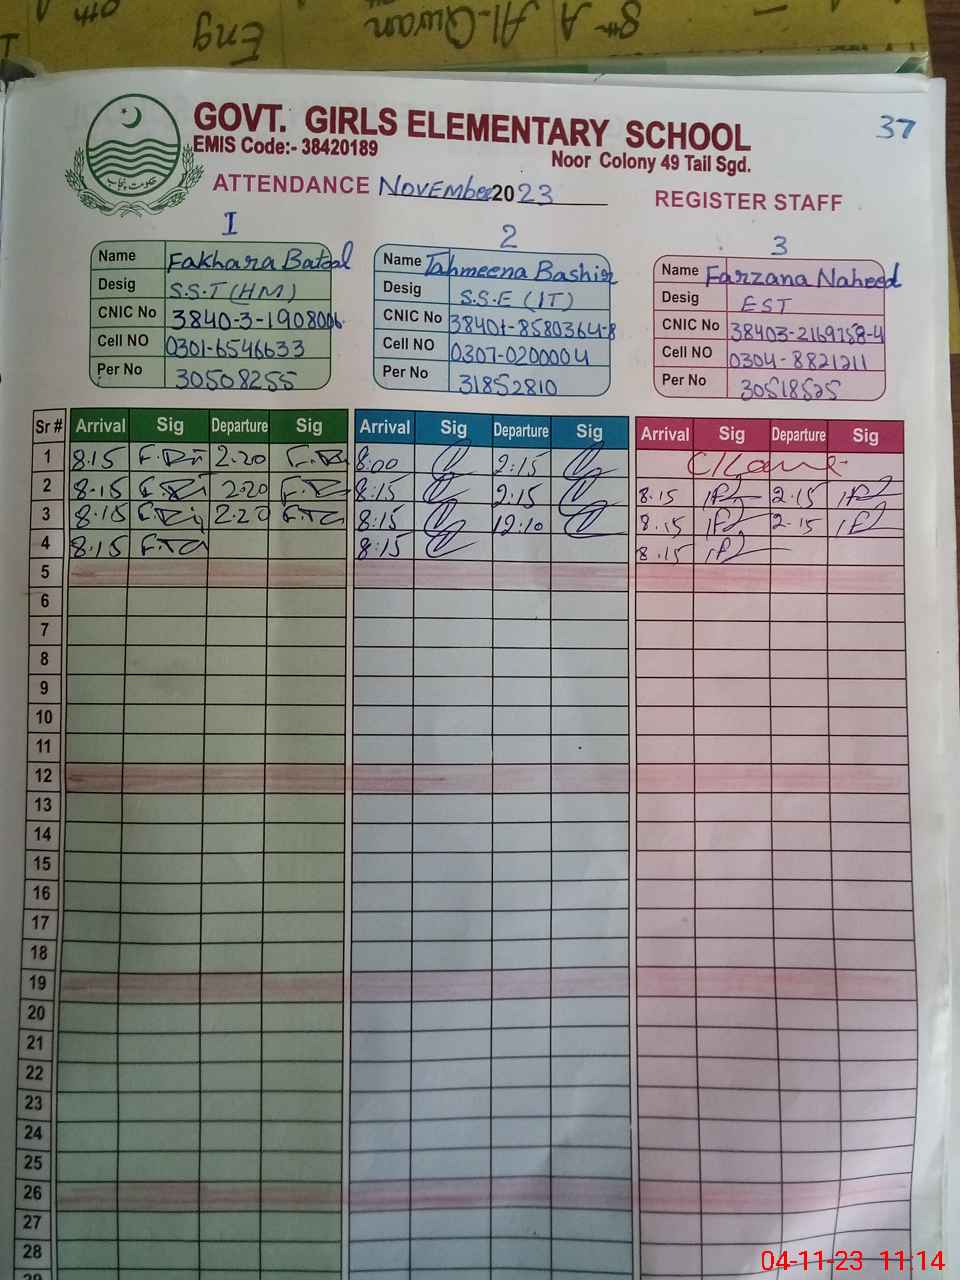 8th A Al-Quran Eng
GOVT. GIRLS ELEMENTARY SCHOOL
37
EMIS Code:- 38420189
Noor Colony 49 Tail Sgd.
ATTENDANCE November 2023 REGISTER STAFF
1
Name Fakhara Batool
Desig S.S.T (HM)
CNIC No 3840-3-1908006
Cell NO 0301-6546633
Per No 30508255
2
Name Tahmeena Bashir
Desig S.S.E (IT)
CNIC No 38401-8580364-8
Cell NO 0307-0200004
Per No 31852810
3
Name Farzana Naheed
Desig EST
CNIC No 38403-2169758-4
Cell NO 0304-8821211
Per No 30518525
Sr # Arrival Sig Departure Sig Arrival Sig Departure Sig Arrival Sig Departure Sig
1 8.15 2.20 8:00 2:15 C/Leave
2 8.15 2.20 8:15 2:15 8.15 2.15
3 8.15 2.20 8:15 12:10 8.15 2.15
4 8.15 8:15 8.15
5
6
7
8
9
10
11
12
13
14
15
16
17
18
19
20
21
22
23
24
25
26
27
28
29
04-11-23 11:14